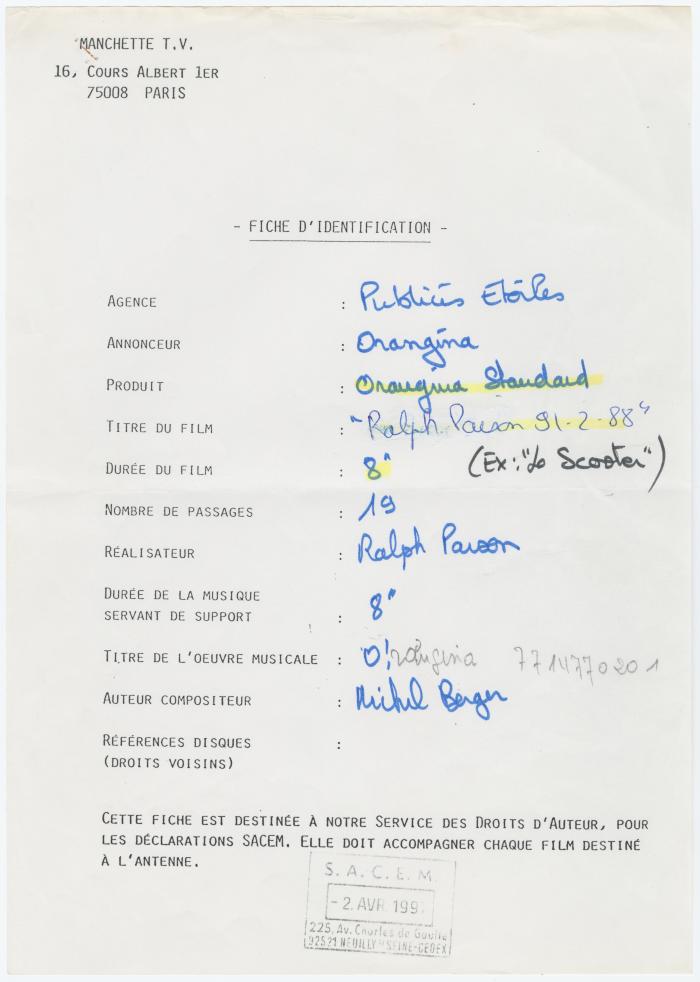 MANCHETTE T.V.
16, COURS ALBERT 1ER
75008 PARIS
- FICHE D'IDENTIFICATION -
AGENCE : Publicis Etoiles
ANNONCEUR : Orangina
PRODUIT : Orangina Standard
TITRE DU FILM : "Ralph Parson 91-2-88"
DURÉE DU FILM : 8" (Ex: "Le Scooter")
NOMBRE DE PASSAGES : 19
RÉALISATEUR : Ralph Parson
DURÉE DE LA MUSIQUE
SERVANT DE SUPPORT : 8"
TITRE DE L'OEUVRE MUSICALE : O! rangina 771477 0201
AUTEUR COMPOSITEUR : Michel Berger
RÉFÉRENCES DISQUES :
(DROITS VOISINS)
CETTE FICHE EST DESTINÉE À NOTRE SERVICE DES DROITS D'AUTEUR, POUR
LES DÉCLARATIONS SACEM. ELLE DOIT ACCOMPAGNER CHAQUE FILM DESTINÉ
À L'ANTENNE.
S. A. C. E. M.
- 2. AVR. 199
225, Av. Charles de Gaulle
92521 NEUILLY-SEINE-CEDEX